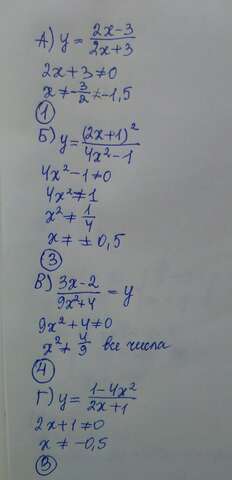 А) y = (2x-3)/(2x+3)
2x+3≠0
x ≠ -3/2 ≠ -1,5
①
Б) y = (2x+1)²/(4x²-1)
4x²-1≠0
4x²≠1
x² ≠ 1/4
x ≠ ±0,5
③
В) (3x-2)/(9x²+4) = y
9x²+4≠0
x² ≠ 4/9 все числа
④
Г) y = (1-4x²)/(2x+1)
2x+1≠0
x ≠ -0,5